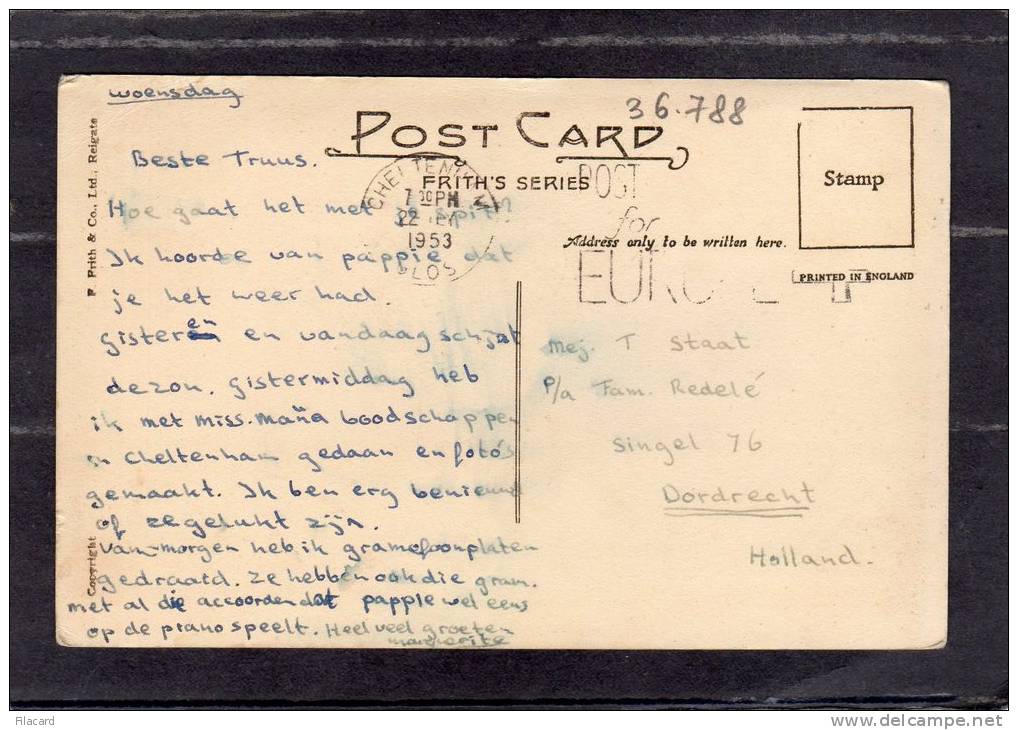 woensdag
36.788
POST CARD
FRITH'S SERIES
Address only to be written here.
Stamp
PRINTED IN ENGLAND
F. Frith & Co., Ltd., Reigate
Copyright
CHELTENHAM
7 30 PM
22
1953
GLOS
POST
for
EUROPE
Beste Truus.
Hoe gaat het met je spit?
Ik hoorde van pappie dat
je het weer had.
gisteren en vandaag schijnt
de zon. gistermiddag heb
ik met miss. Maña boodschappen
in Cheltenham gedaan en foto's
gemaakt. Ik ben erg benieuwd
of ze gelukt zijn.
van-morgen heb ik gramofoonplaten
gedraaid. ze hebben ook die gram.
met al die accoorden dat pappie wel eens
op de piano speelt. Heel veel groeten
margerite
Mej. T Staat
P/a Fam. Redelé
Singel 76
Dordrecht
Holland.
Filacard
delcampe.net